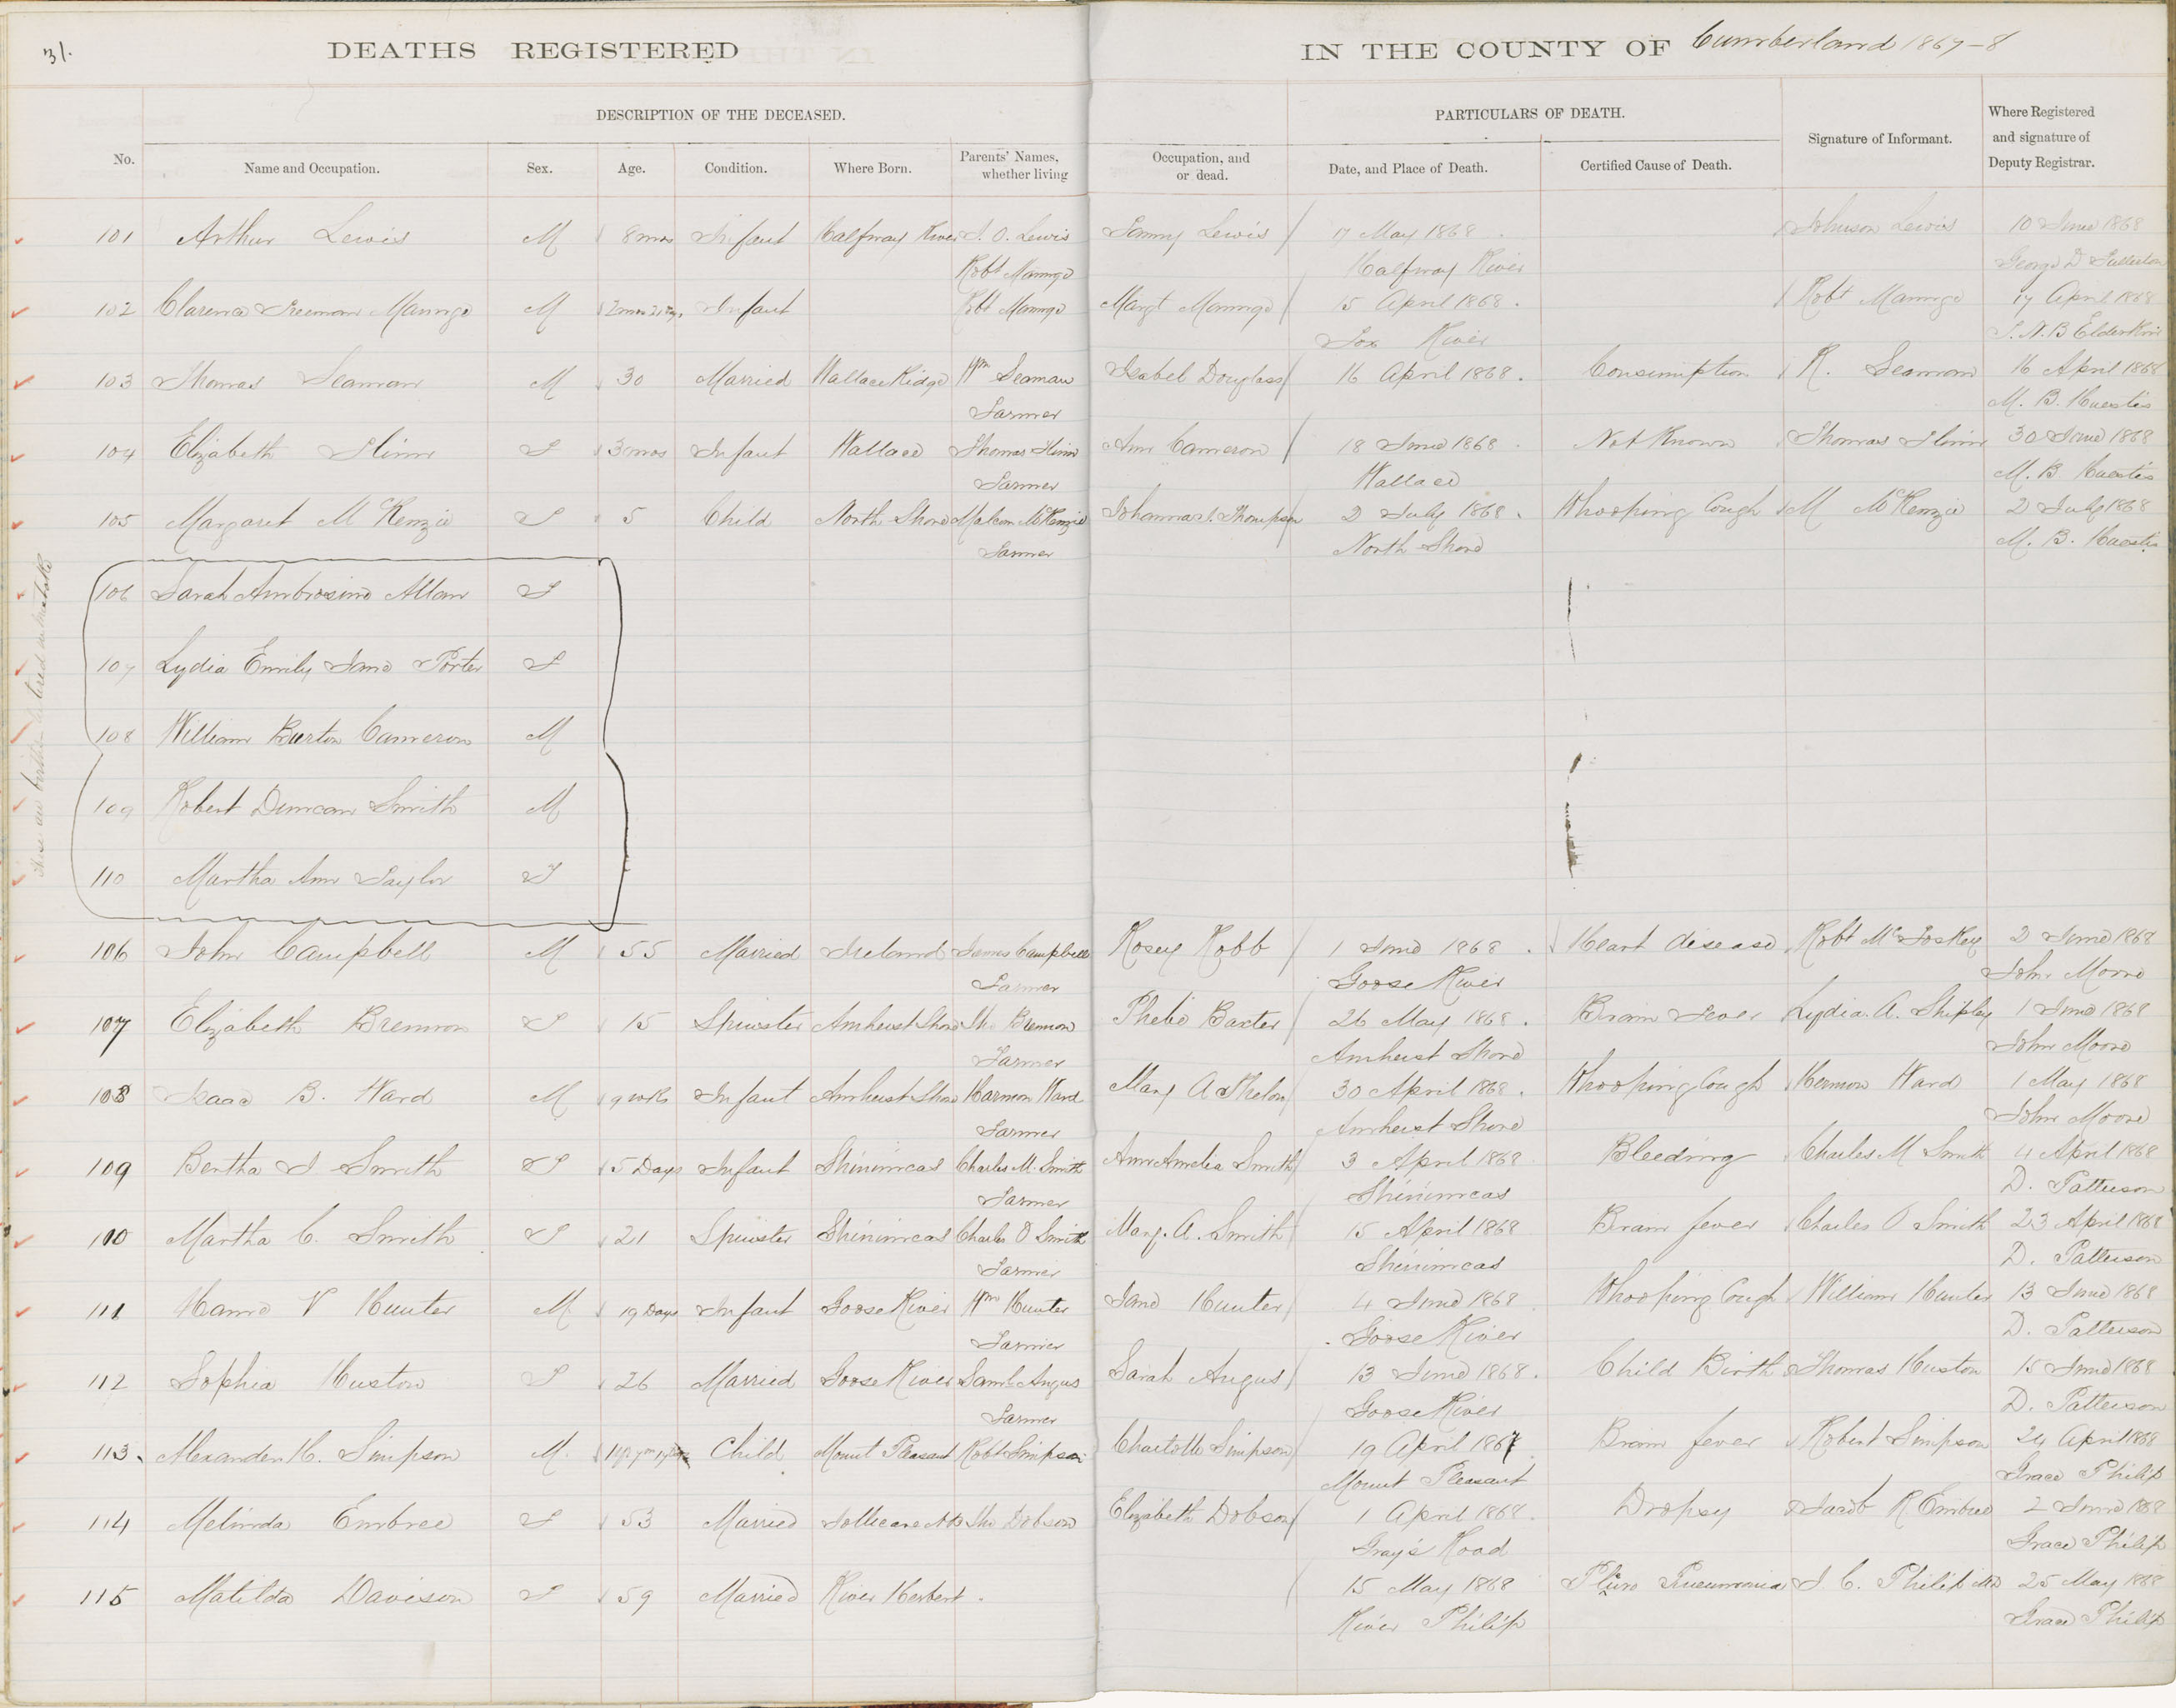 31.
DEATHS REGISTERED IN THE COUNTY OF Cumberland 1867-8
DESCRIPTION OF THE DECEASED. PARTICULARS OF DEATH.
No. Name and Occupation. Sex. Age. Condition. Where Born. Parents' Names, whether living Occupation, and or dead. Date, and Place of Death. Certified Cause of Death. Signature of Informant. Where Registered and signature of Deputy Registrar.
101 Arthur Lewis M 8 mos Infant Halfway River J. O. Lewis Fanny Lewis 17 May 1868 Johnson Lewis 10 June 1868
Robt Halfway River George D Fullerton
102 Clarence Freeman M 2 mos Infant Robt Margt 15 April 1868. Robt 17 April 1868
Fox River J. N. B Elderkin
103 Thomas Seaman M 30 Married Wallace Ridge Wm Seaman Isabel Douglass 16 April 1868. Consumption R. Seaman 16 April 1868
Farmer M. B. Huestis
104 Elizabeth F 3 mos Infant Wallace Thomas Ann Cameron 18 June 1868 Not Known Thomas 30 June 1868
Farmer Wallace M. B. Huestis
105 Margaret McKenzie F 5 Child North Shore Malcom McKenzie Johanna Thompson 2 July 1868. Whooping Cough M McKenzie 2 July 1868
Farmer North Shore M. B. Huestis
These are births entered in mistake
106 Sarah Ambrosine Allan F
107 Lydia Emily Jane Porter F
108 William Burton Cameron M
109 Robert Duncan Smith M
110 Martha Ann Taylor F
106 John Campbell M 55 Married Ireland James Campbell Rosey Robb 1 June 1868. Heart disease Robt 2 June 1868
Farmer Goose River John Moore
107 Elizabeth Brennon F 15 Spinster Amherst Shore Brennon Phebe Baxter 26 May 1868. Brain Fever Lydia. A. Shipley 1 June 1868
Farmer Amherst Shore John Moore
108 Isaac B. Ward M 9 wks Infant Amherst Shore Harmon Ward Mary A 30 April 1868. Whooping Cough Harmon Ward 1 May 1868
Farmer Amherst Shore John Moore
109 Bertha J Smith F 5 Days Infant Shinimcas Charles M. Smith Ann Amelia Smith 3 April 1868 Bleeding Charles M Smith 4 April 1868
Farmer Shinimcas D. Patterson
110 Martha C. Smith F 21 Spinster Shinimcas Charles O Smith Mary. A. Smith 15 April 1868 Brain fever Charles O Smith 23 April 1868
Farmer Shinimcas D. Patterson
111 V Hunter M 19 Days Infant Goose River Wm Hunter Jane Hunter 4 June 1868 Whooping Cough William Hunter 13 June 1868
Farmer Goose River D. Patterson
112 Sophia Huston F 26 Married Goose River Saml Angus Sarah Angus 13 June 1868. Child Birth Thomas Huston 15 June 1868
Farmer Goose River D. Patterson
113. Alexander H. Simpson M. Child Mount Pleasant Robt Simpson Charlotte Simpson 19 April 1867 Brain fever Robert Simpson 24 April 1868
Mount Pleasant Grace Philip
114 Melinda Embree F 53 Married Dobson Elizabeth Dobson 1 April 1868. Dropsy Jacob R Embree 2 June 1868
Gray's Road Grace Philip
115 Matilda Davison F 59 Married River Herbert. 15 May 1868 Pluro Pneumonia J C. Philip MD 25 May 1868
River Philip Grace Philip